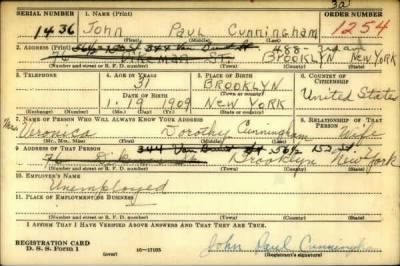 3a
SERIAL NUMBER 1. NAME (Print) ORDER NUMBER
1436 John Paul Cunningham 1254
(First) (Middle) (Last)
2. ADDRESS (Print) 344 Van 488-3rd ave
76 DIKEMAN ST. BROOKLYN NEW YORK
(Number and street or R. F. D. number) (Town) (County) (State)
3. TELEPHONE 4. AGE IN YEARS 5. PLACE OF BIRTH 6. COUNTRY OF CITIZENSHIP
31 BROOKLYN
DATE OF BIRTH (Town or county) United States
1 19 1909 NEW YORK
(Exchange) (Number) (Mo.) (Day) (Yr.) (State or country)
7. NAME OF PERSON WHO WILL ALWAYS KNOW YOUR ADDRESS 8. RELATIONSHIP OF THAT PERSON
Mrs Veronica Dorothy Cunningham Wife
(Mr., Mrs., Miss) (First) (Middle) (Last)
9. ADDRESS OF THAT PERSON 344 Van St 56½ 152 St
76 Brooklyn New York
(Number and street or R. F. D. number) (Town) (County) (State)
10. EMPLOYER'S NAME
Unemployed
11. PLACE OF EMPLOYMENT OR BUSINESS
(Number and street or R. F. D. number) (Town) (County) (State)
I AFFIRM THAT I HAVE VERIFIED ABOVE ANSWERS AND THAT THEY ARE TRUE.
REGISTRATION CARD
D. S. S. Form 1 (over) 16-17105 John Paul Cunningham
(Registrant's signature)